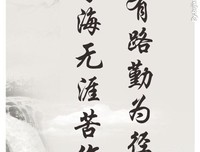 有路勤为径
海无涯苦作